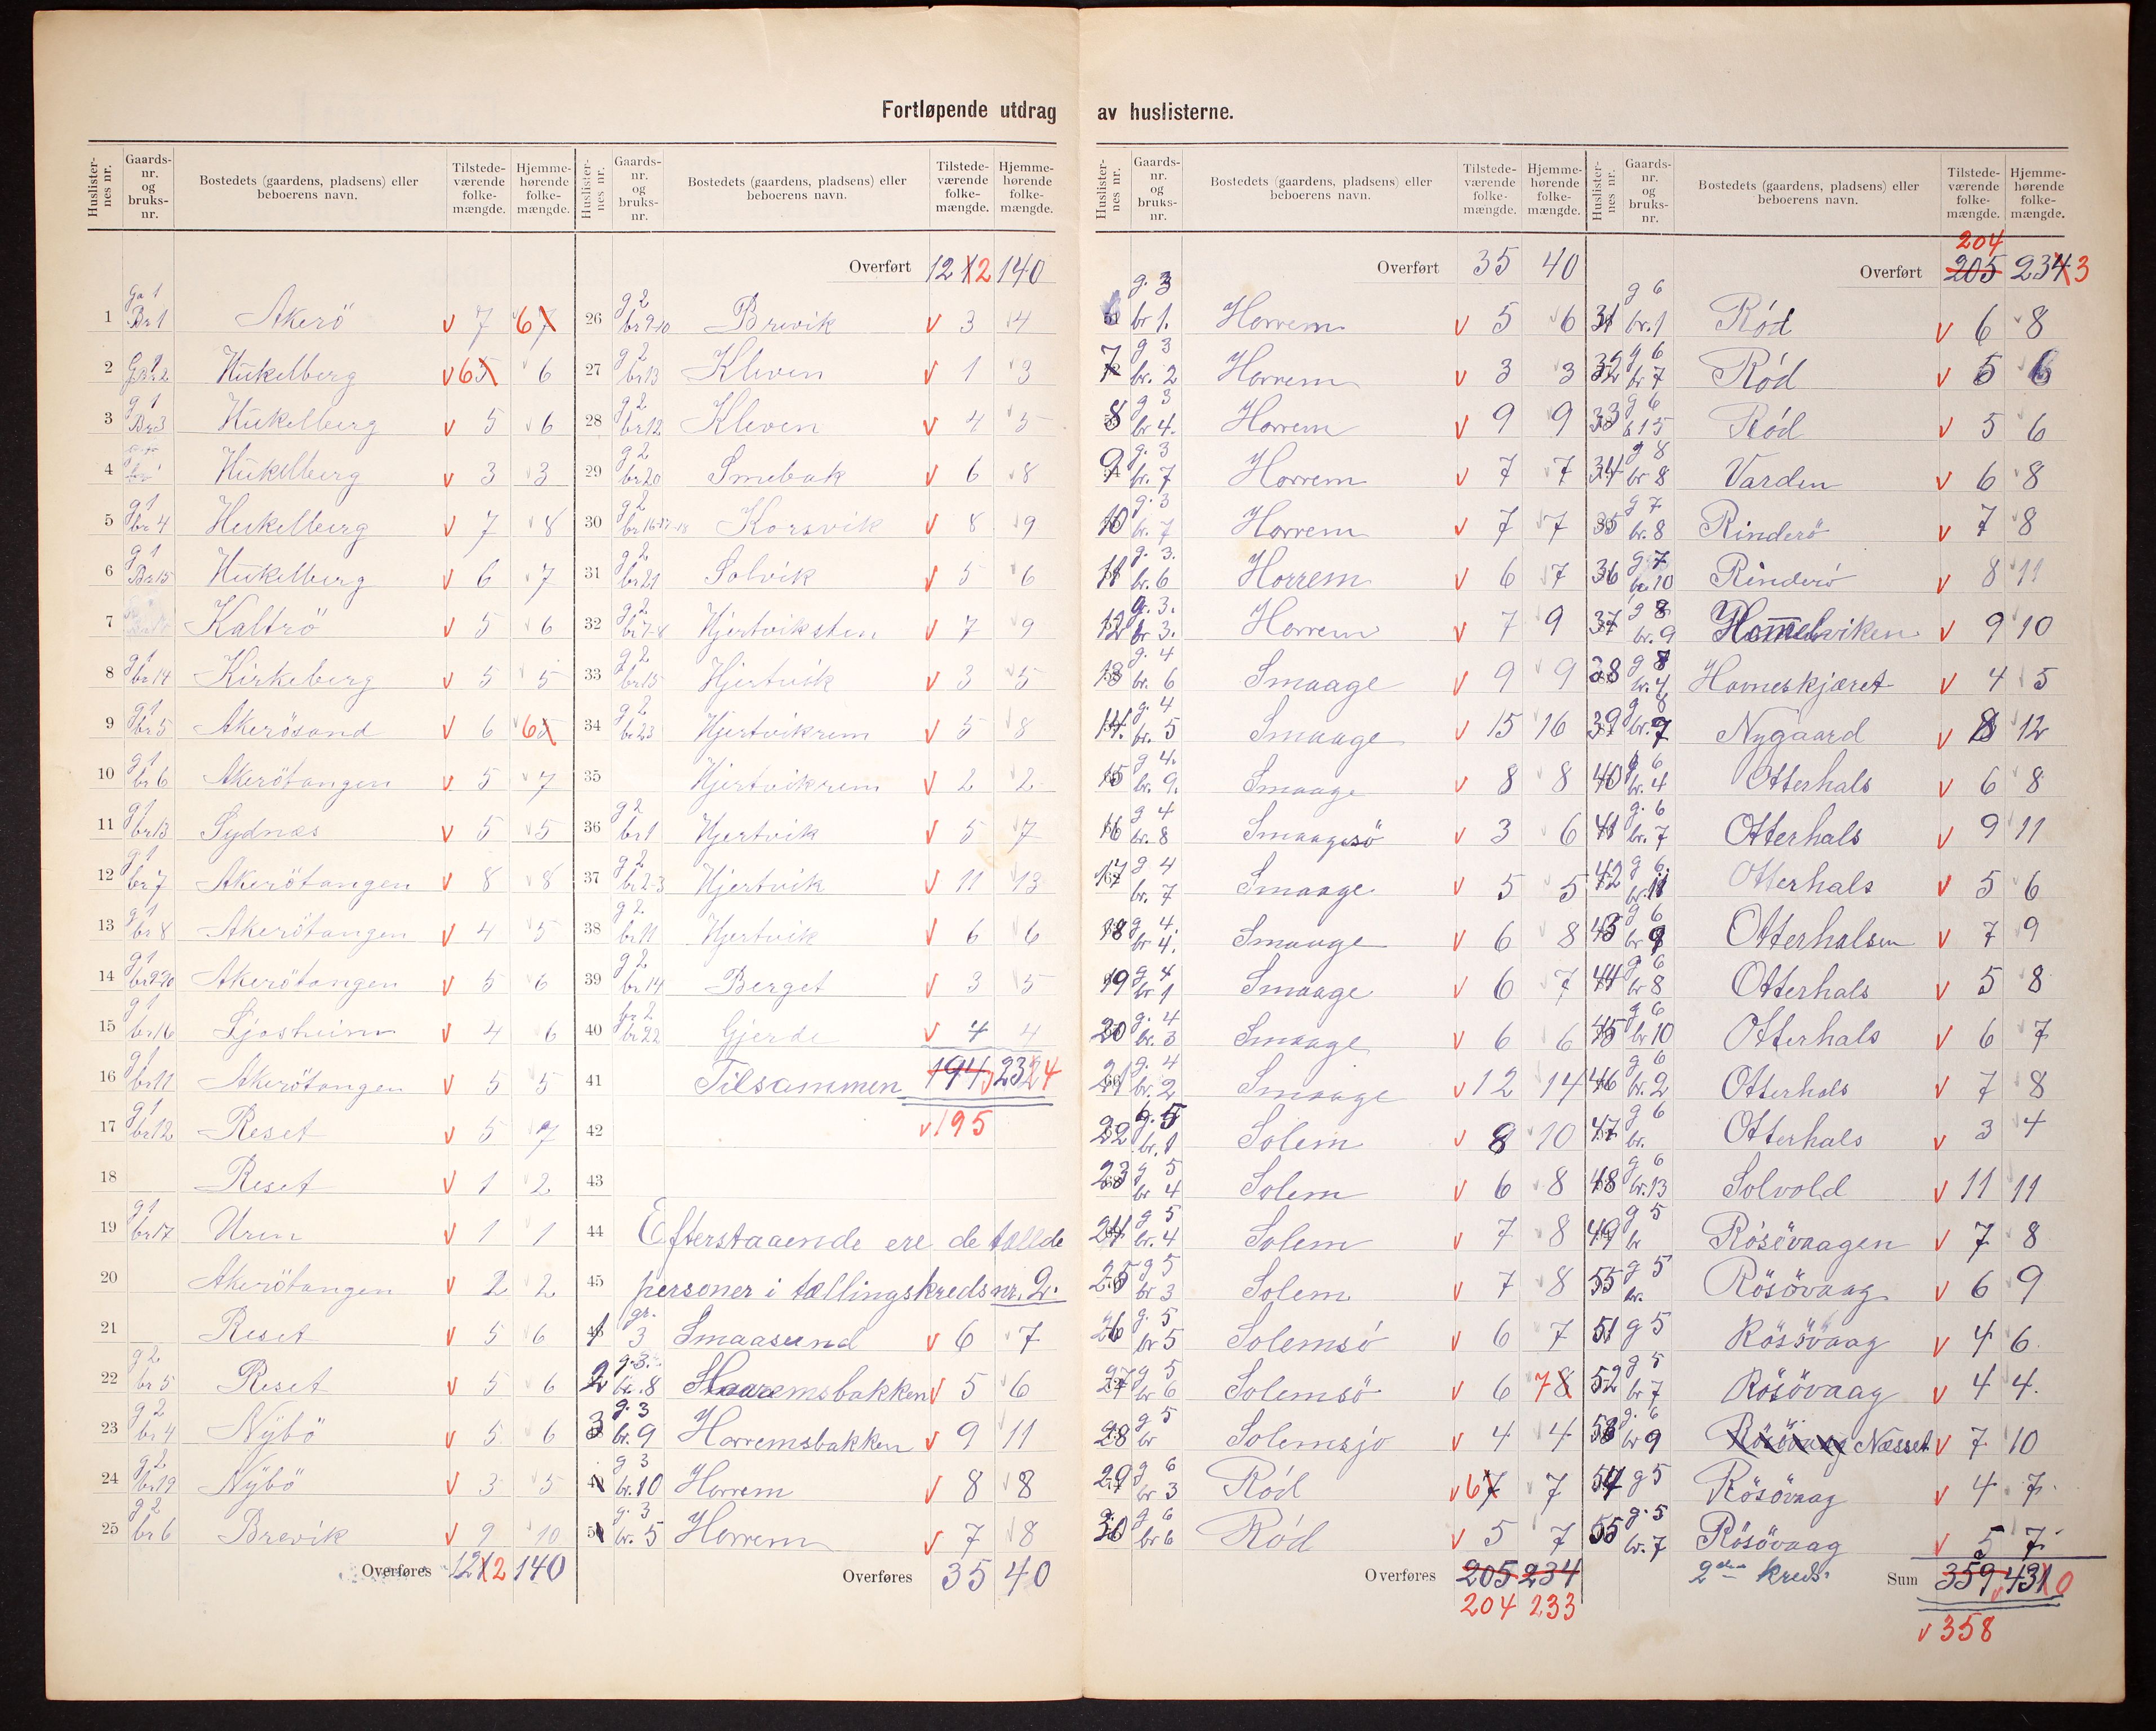 Fortløpende utdrag av huslisterne.
Huslisternes nr. Gaards-nr. og bruks-nr. Bostedets (gaardens, pladsens) eller beboerens navn. Tilstedeværende folkemængde. Hjemmehørende folkemængde.
1 Ga 1 Br 1 Akerö v 7 v 6 7
2 Gr 1 Br 2 Hukelberg v 6 5 6
3 g 1 Br 3 Hukelberg v 5 v 6
4 Hukelberg v 3 v 3
5 g 1 br 4 Hukelberg v 7 v 8
6 g 1 Br 15 Hukelberg v 6 v 7
7 Kaltrö v 5 v 6
8 g 1 br 14 Kirkeberg v 5 v 5
9 g 1 br 5 Akerösand v 6 v 6 5
10 g 1 br 6 Akerötangen v 5 v 7
11 g 1 br 13 Sydnæs v 5 v 5
12 g 1 br 7 Akerötangen v 8 v 8
13 g 1 br 8 Akerötangen v 4 v 5
14 g 1 br 9-10 Akerötangen v 5 v 6
15 g 1 br 16 Ljosheim v 4 v 6
16 g 1 br 11 Akerötangen v 5 v 5
17 g 1 br 12 Reset v 5 v 7
18 Reset v 1 v 2
19 g 1 br 17 Uren v 1 v 1
20 Akerötangen v 2 v 2
21 Reset v 5 v 6
22 g 2 br 5 Reset v 5 v 6
23 g 2 br 4 Nybö v 5 6
24 g 2 br 19 Nybö v 3 v 5
25 g 2 br 6 Brevik v 9 v 10
Overføres 121 2 140
Huslisternes nr. Gaards-nr. og bruks-nr. Bostedets (gaardens, pladsens) eller beboerens navn. Tilstedeværende folkemængde. Hjemmehørende folkemængde.
Overført 121 2 140
26 g 2 br 9-10 Brevik v 3 v 4
27 g 2 br 13 Kleven v 1 v 3
28 g 2 br 12 Kleven v 4 v 5
29 g 2 br 20 Smebak v 6 v 8
30 g 2 br 16-17-18 Korsvik v 8 v 9
31 g 2 br 21 Solvik v 5 v 6
32 g 2 br 7-8 Hjertviksten v 7 v 9
33 g 2 br 15 Hjertvik v 3 v 5
34 g 2 br 23 Hjertvikrem v 5 v 8
35 Hjertvikrem v 2 v 2
36 g 2 br 1 Hjertvik v 5 v 7
37 g 2 br 2-3 Hjertvik v 11 v 13
38 g 2 br 11 Hjertvik v 6 v 6
39 g 2 br 14 Berget v 3 v 5
40 br 2 br 22 Gjerde v 4 4
41 Tilsammen 194 v 232 4
42 v 195
43
44 Efterstaaende ere de tællde
45 personer i tællingskreds nr. 2.
1 gr. 3 Smaasund v 6 v 7
2 g. 3. br. 8 Haaremsbakken v 5 v 6
3 g. 3 br. 9 Harremsbakken v 9 11
4 g 3 br. 10 Harrem v 8 v 8
5 g. 3 br. 5 Harrem v 7 v 8
Overføres 35 40
Huslisternes nr. Gaards-nr. og bruks-nr. Bostedets (gaardens, pladsens) eller beboerens navn. Tilstedeværende folkemængde. Hjemmehørende folkemængde.
Overført 35 40
6 g. 3 br 1. Harrem v 5 v 6
7 g 3 br. 2 Harrem v 3 v 3
8 g 3 br 4. Harrem v 9 v 9
9 g. 3 br. 7 Harrem v 7 v 7
10 g. 3 br. 7 Harrem v 7 v 7
11 g. 3. br. 6 Horrem v 6 v 7
12 g. 3. br 3. Harrem v 7 v 9
13 g. 4 br. 6 Smaage v 9 v 9
14 g. 4 br. 5 Smaage v 15 v 16
15 g 4. br. 9. Smaage v 8 v 8
16 g 4 br. 8 Smaagesö v 3 v 6
17 g 4 br. 7 Smaage v 5 v 5
18 g 4. br 4. Smaage v 6 v 8
19 g. 4 br 1 Smaage v 6 v 7
20 g. 4 br. 3 Smaage v 6 v 6
21 g. 4 br. 2 Smaage v 12 v 14
22 g. 5 br. 1 Solem v 8 v 10
23 g 5 br 4 Solem v 6 v 8
24 g 5 br. 4 Solem v 7 v 8
25 g 5 br 3 Solem v 7 v 8
26 g. 5 br 5 Solemsö v 6 v 7
27 g 5 br 6 Solemsö v 6 7 8
28 g 5 br Solemsjo v 4 v 4
29 g 6 br 3 Ród v 6 7 v 7
30 g 6 br 6 Ród v 5 v 7
Overføres 205 234
204 233
Huslisternes nr. Gaards-nr. og bruks-nr. Bostedets (gaardens, pladsens) eller beboerens navn. Tilstedeværende folkemængde. Hjemmehørende folkemængde.
204
Overført 205 234 3
31 g 6 br. 1 Ród v 6 v 8
32 g 6 br 7 Ród v 5 v 6
33 g 6 b 15 Ród v 5 v 6
34 g 8 br 8 Varden v 6 v 8
35 g 7 br. 8 Rinderö v 7 v 8
36 g 7 br. 10 Rinderö v 8 v 11
37 g 8 br. 9 Hom̅elviken v 9 v 10
38 g 8 br. 4 Havneskjæret v 4 v 5
39 g 8 br. 7 Nygaard v 8 v 12
40 g 6 br. 4 Otterhals v 6 v 8
41 g. 6 br. 7 Otterhals v 9 v 11
42 g 6. br. 11 Otterhals v 5 v 6
43 g 6 br 9 Otterhalsen v 7 v 9
44 g 6 br 8 Otterhals v 5 v 8
45 g 6 br 10 Otterhals v 6 v 7
46 g 6 br. 2 Otterhals v 7 v 8
47 g 6 br. Otterhals v 3 v 4
48 g 6 br. 13 Solvold v 11 11
49 g 5 br Rösövaagen v 7 v 8
55 g 5 br. Rösövaag v 6 v 9
51 g 5 Rösövaag v 4 6
52 g 5 br 7 Rösövaag v 4 4.
53 g. 6 br 9 Rösövaag Næsset v 7 v 10
54 g 5 Rösövaag v 4 v 7.
55 g. 5 br. 7 Rösövaag v 5 7.
2den kreds. Sum 359 v 431 0
v 358